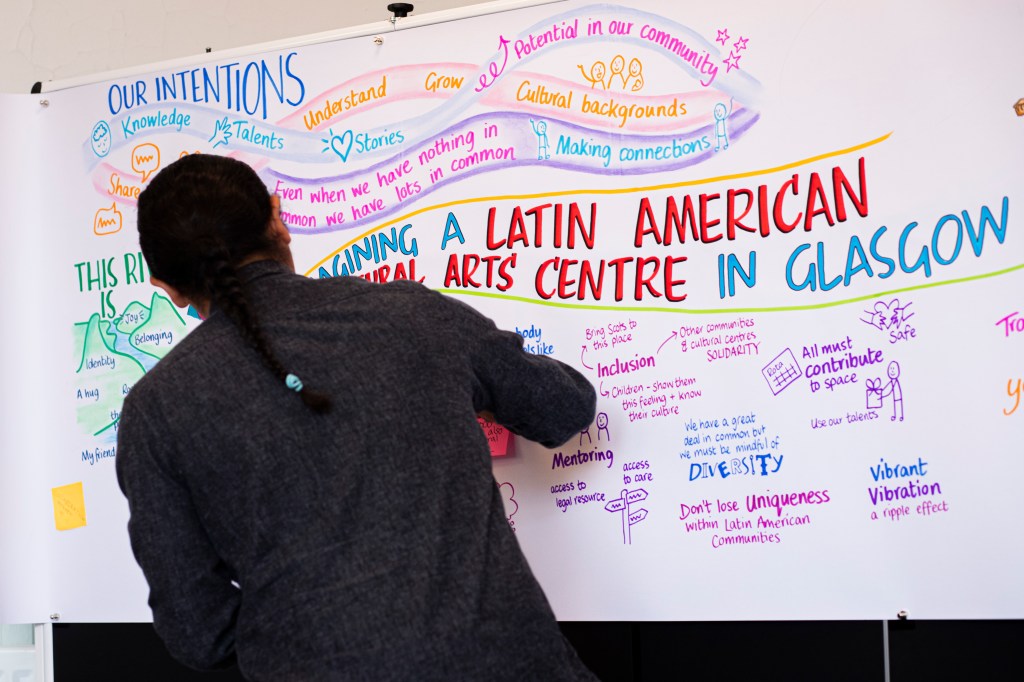 OUR INTENTIONS
Knowledge
Talents
Stories
Understand
Grow
Potential in our community
Cultural backgrounds
Share
Even when we have nothing in
common we have lots in common
Making connections
AGINING A LATIN AMERICAN
URAL ARTS CENTRE IN GLASGOW
THIS RI
IS
Joy
Belonging
Identity
A hug
My friend
body
ls like
Bring Scots to
this place
Inclusion
Other communities
& cultural centres
SOLIDARITY
Children - show them
this feeling + know
their culture
Mentoring
access to
legal resource
access
to care
We have a great
deal in common but
we must be mindful of
DIVERSITY
Don't lose Uniqueness
within Latin American
Communities
Rota
All must
contribute
to space
Use our talents
Safe
Vibrant
Vibration
a ripple effect
Tro
yo